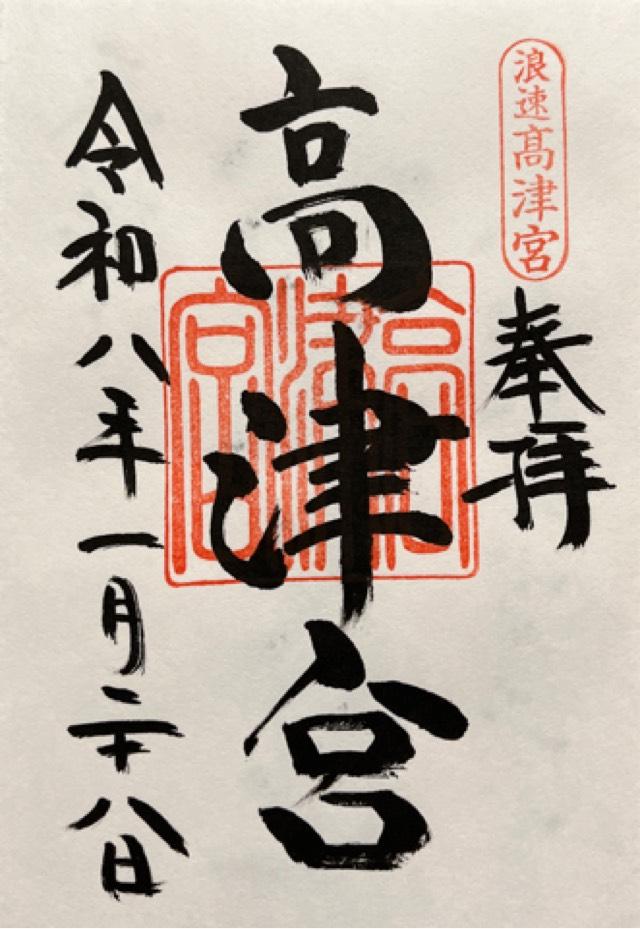 浪速髙津宮
奉拝
高津宮
高津宮
令和八年一月二十八日